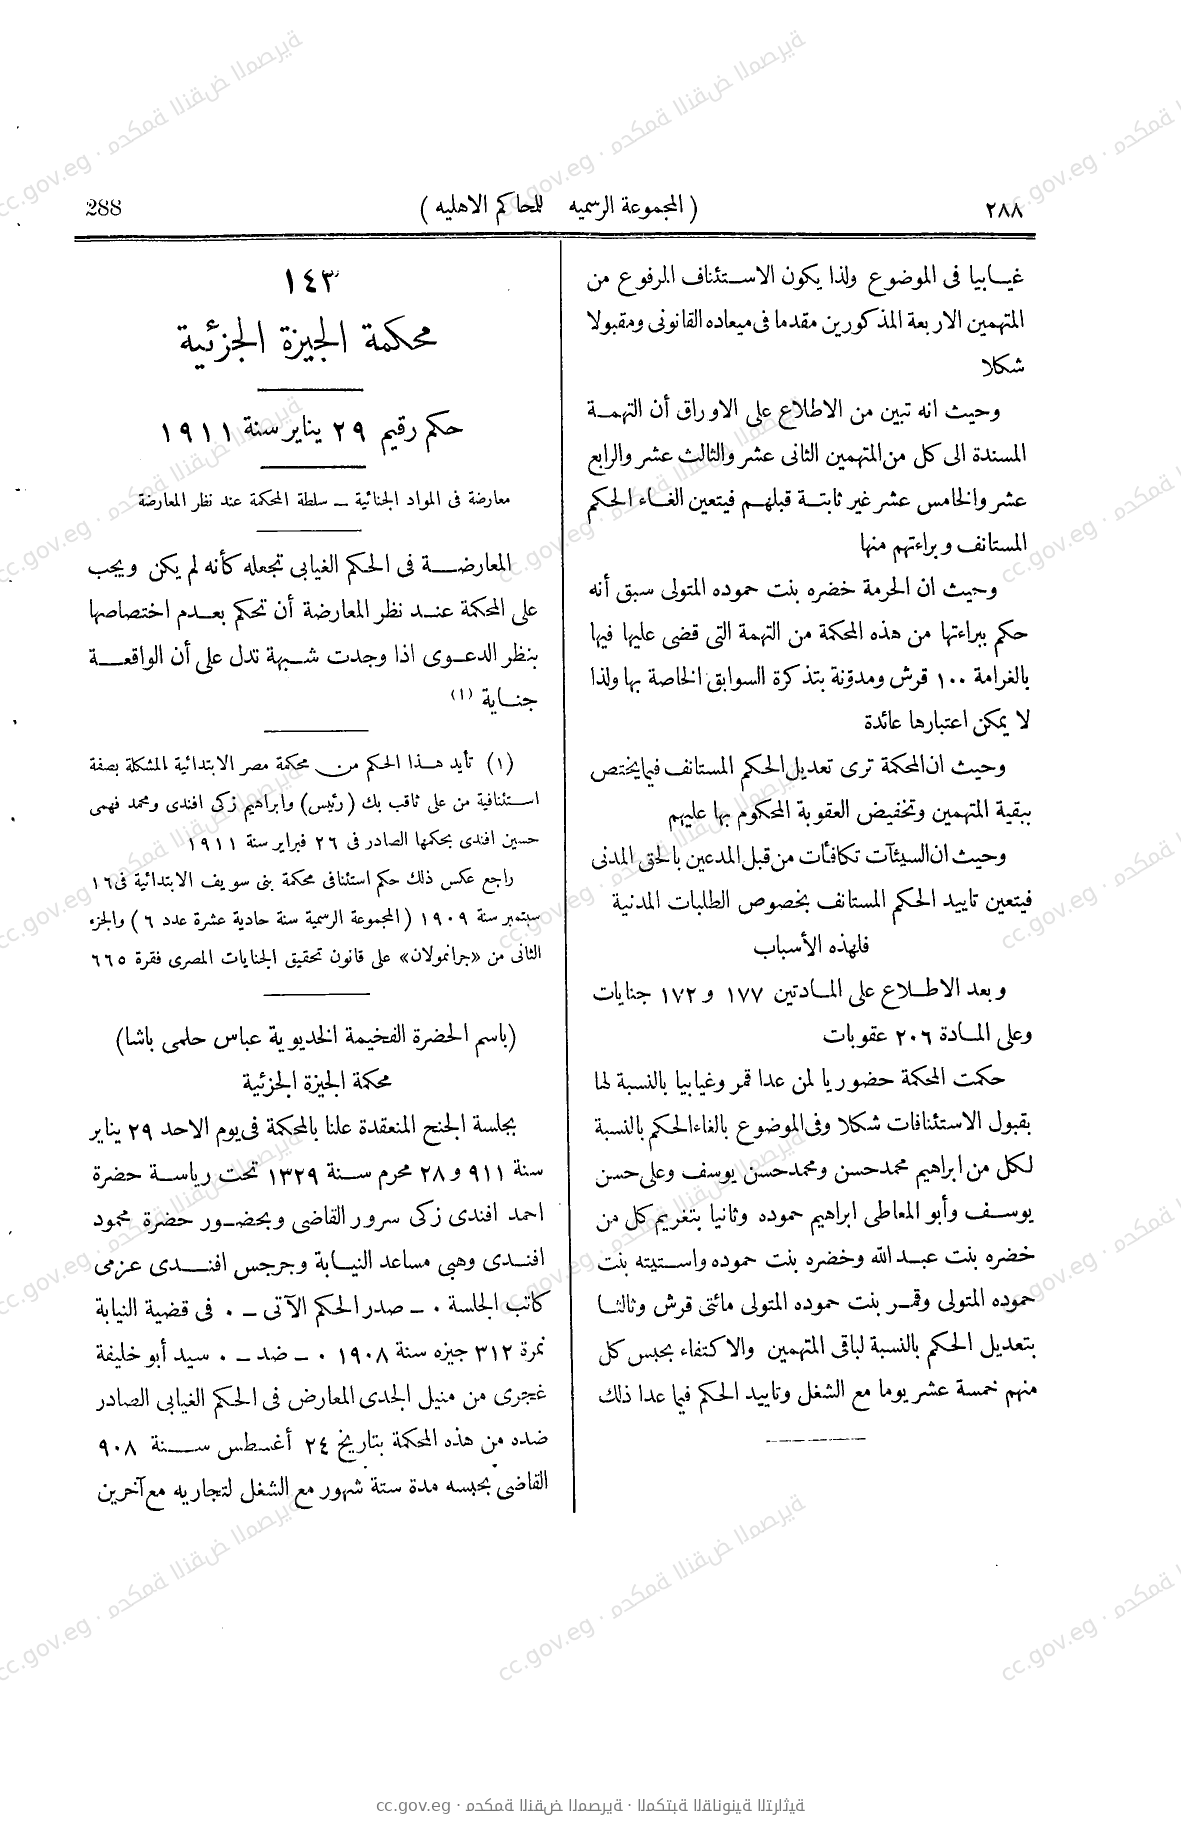 288
(المجموعة الرسميه للمحاكم الاهليه)
٢٨٨
غيابيا فى الموضوع ولذا يكون الاستئناف المرفوع من
المتهمين الاربعة المذكورين مقدما فى ميعاده القانونى ومقبولا
شكلا
وحيث انه تبين من الاطلاع على الاوراق أن التهمة
المسندة الى كل من المتهمين الثانى عشر والثالث عشر والرابع
عشر والخامس عشر غير ثابتة قبلهم فيتعين الغاء الحكم
المستانف وبراءتهم منها
وحيث ان الحرمة خضره بنت حموده المتولى سبق أنه
حكم ببراءتها من هذه المحكمة من التهمة التى قضى عليها فيها
بالغرامة ١٠٠ قرش ومدوّنة بتذكرة السوابق الخاصة بها ولذا
لا يمكن اعتبارها عائدة
وحيث ان المحكمة ترى تعديل الحكم المستانف فيما يختص
ببقية المتهمين وتخفيض العقوبة المحكوم بها عليهم
وحيث ان السيئآت تكافأت من قبل المدعين بالحق المدنى
فيتعين تاييد الحكم المستانف بخصوص الطلبات المدنية
فلهذه الأسباب
وبعد الاطلاع على المادتين ١٧٧ و ١٧٢ جنايات
وعلى المادة ٢٠٦ عقوبات
حكمت المحكمة حضوريا لمن عدا قمر وغيابيا بالنسبة لها
بقبول الاستئنافات شكلا وفى الموضوع بالغاء الحكم بالنسبة
لكل من ابراهيم محمد حسن ومحمد حسن يوسف وعلى حسن
يوسف وأبو المعاطى ابراهيم حموده وثانيا بتغريم كل من
خضره بنت عبد الله وخضره بنت حموده واستيته بنت
حموده المتولى وقمر بنت حموده المتولى مائتى قرش وثالثا
بتعديل الحكم بالنسبة لباقى المتهمين والاكتفاء بحبس كل
منهم خمسة عشر يوما مع الشغل وتاييد الحكم فيما عدا ذلك
١٤٣
محكمة الجيزة الجزئية
حكم رقيم ٢٩ يناير سنة ١٩١١
معارضة فى المواد الجنائية ــ سلطة المحكمة عند نظر المعارضة
المعارضة فى الحكم الغيابى تجعله كأنه لم يكن ويجب
على المحكمة عند نظر المعارضة أن تحكم بعدم اختصاصها
بنظر الدعوى اذا وجدت شبهة تدل على أن الواقعة
جناية (١)
(١) تأيد هذا الحكم من محكمة مصر الابتدائية المشكلة بصفة
استئنافية من على ثاقب بك (رئيس) وابراهيم زكى افندى ومحمد فهمى
حسين افندى بحكمها الصادر فى ٢٦ فبراير سنة ١٩١١
راجع عكس ذلك حكم استئنافى محكمة بنى سويف الابتدائية فى ١٦
سبتمبر سنة ١٩٠٩ (المجموعة الرسمية سنة حادية عشرة عدد ٦) والجزء
الثانى من «جرانمولان» على قانون تحقيق الجنايات المصرى فقرة ٦٦٥
(باسم الحضرة الفخيمة الخديوية عباس حلمى باشا)
محكمة الجيزة الجزئية
بجلسة الجنح المنعقدة علنا بالمحكمة فى يوم الاحد ٢٩ يناير
سنة ٩١١ و ٢٨ محرم سنة ١٣٢٩ تحت رياسة حضرة
احمد افندى زكى سرور القاضى وبحضور حضرة محمود
افندى وهبى مساعد النيابة وجرجس افندى عزمى
كاتب الجلسة ٠ ــ صدر الحكم الآتى ــ ٠ فى قضية النيابة
نمرة ٣١٢ جيزه سنة ١٩٠٨ ٠ ــ ضد ــ ٠ سيد أبو خليفة
غجرى من منيل الجدى المعارض فى الحكم الغيابى الصادر
ضده من هذه المحكمة بتاريخ ٢٤ أغسطس سنة ٩٠٨
القاضى بحبسه مدة ستة شهور مع الشغل لتجاريه مع آخرين
cc.gov.eg · محكمة النقض المصرية · المكتبة القانونية التراثية